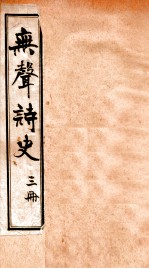 無聲詩史
三冊